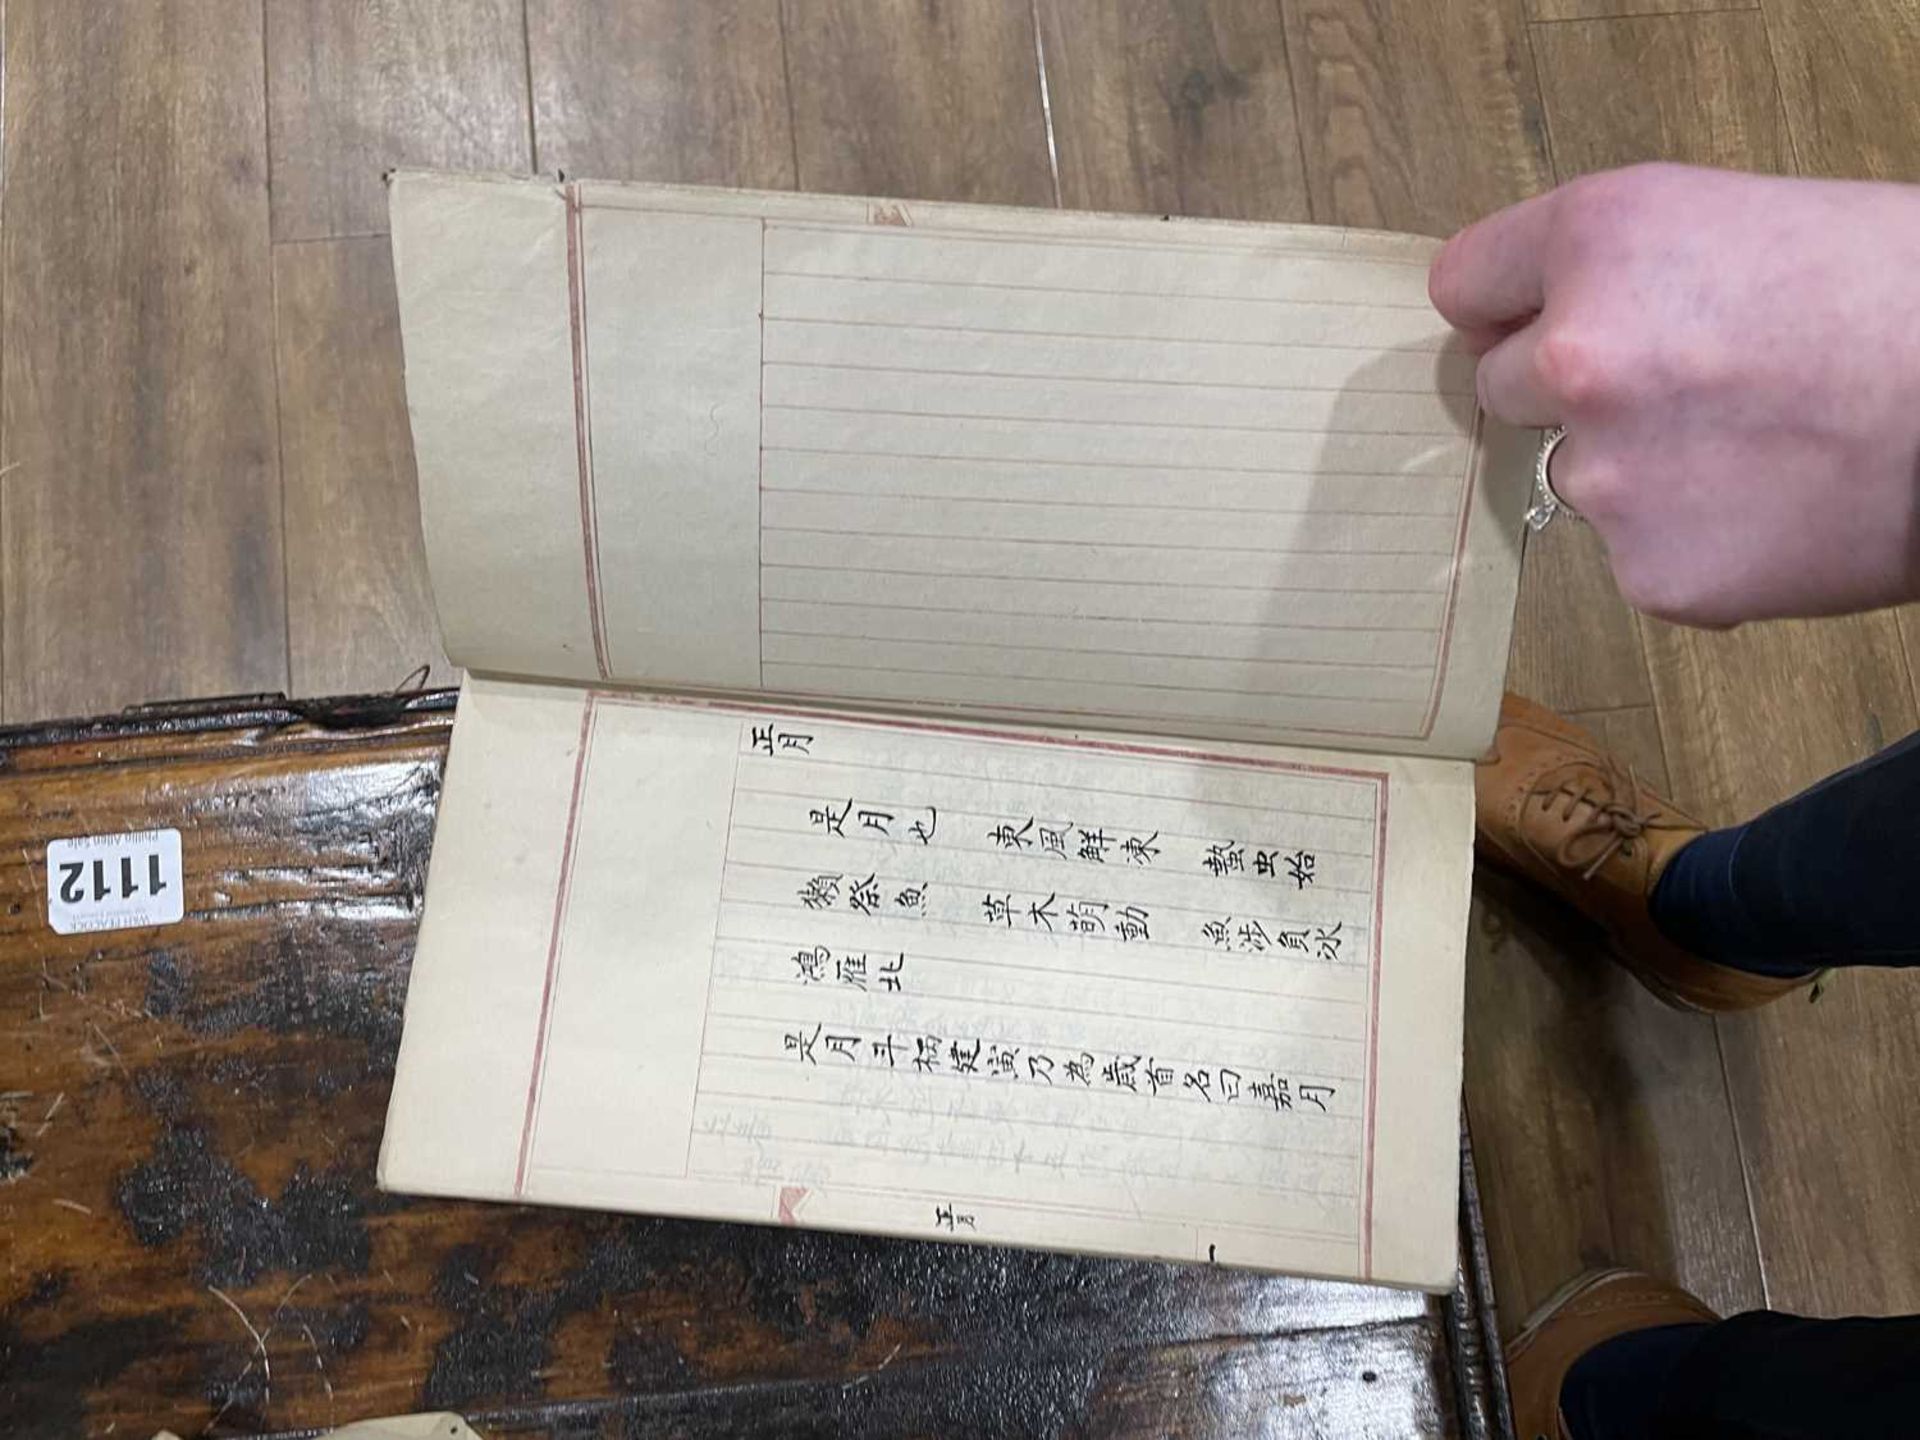 正月
是月也 東風鮮凍 蟄虫始
獺祭魚 草木萌動 魚涉負冰
鴻雁北
是月斗柄建寅乃為歲首名曰嘉月
正月
一
1112
Philip Allen Sale